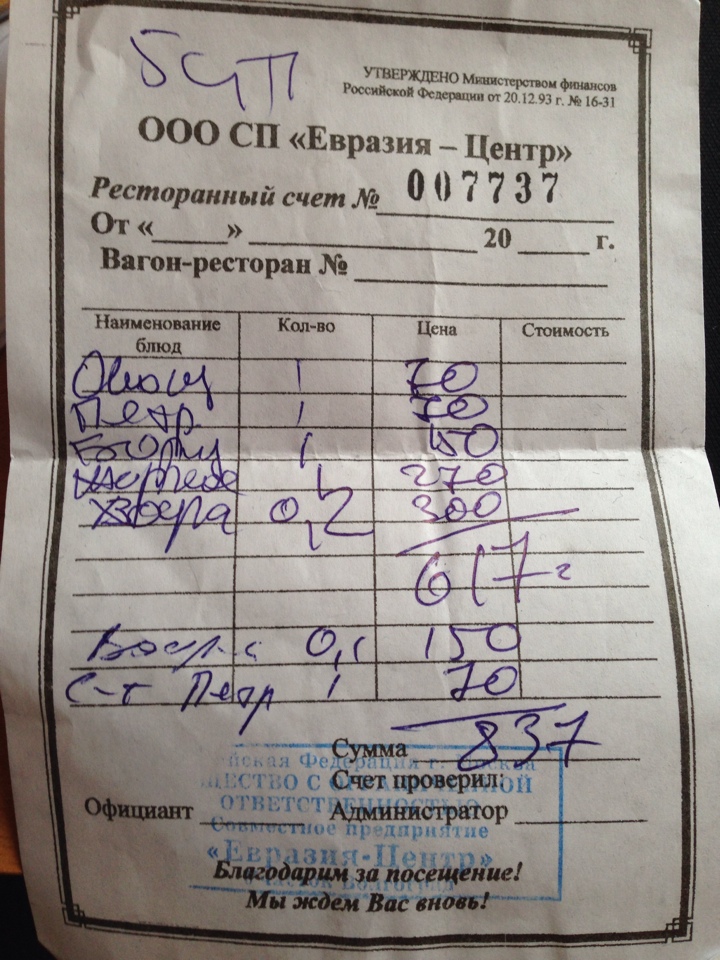 УТВЕРЖДЕНО Министерством финансов
Российской Федерации от 20.12.93 г. № 16-31
ООО СП «Евразия – Центр»
Ресторанный счет № 007737
От «____» ____ 20 ____ г.
Вагон-ресторан №
Наименование блюд Кол-во Цена Стоимость
Овощ 1 70
Петр 1 70
1 150
1 270
0,2 300
617
0,1 150
С-т Петр 1 70
Сумма 837
Счет проверил:
Официант ____ Администратор ____
Федерация г. Москва
ОБЩЕСТВО С ОГРАНИЧЕННОЙ
ОТВЕТСТВЕННОСТЬЮ
Совместное предприятие
«Евразия-Центр»
Благодарим за посещение!
Мы ждем Вас вновь!